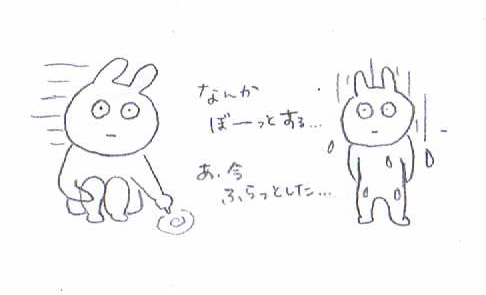 なんか
ぼーっとする…
あ、今
ふらっとした…